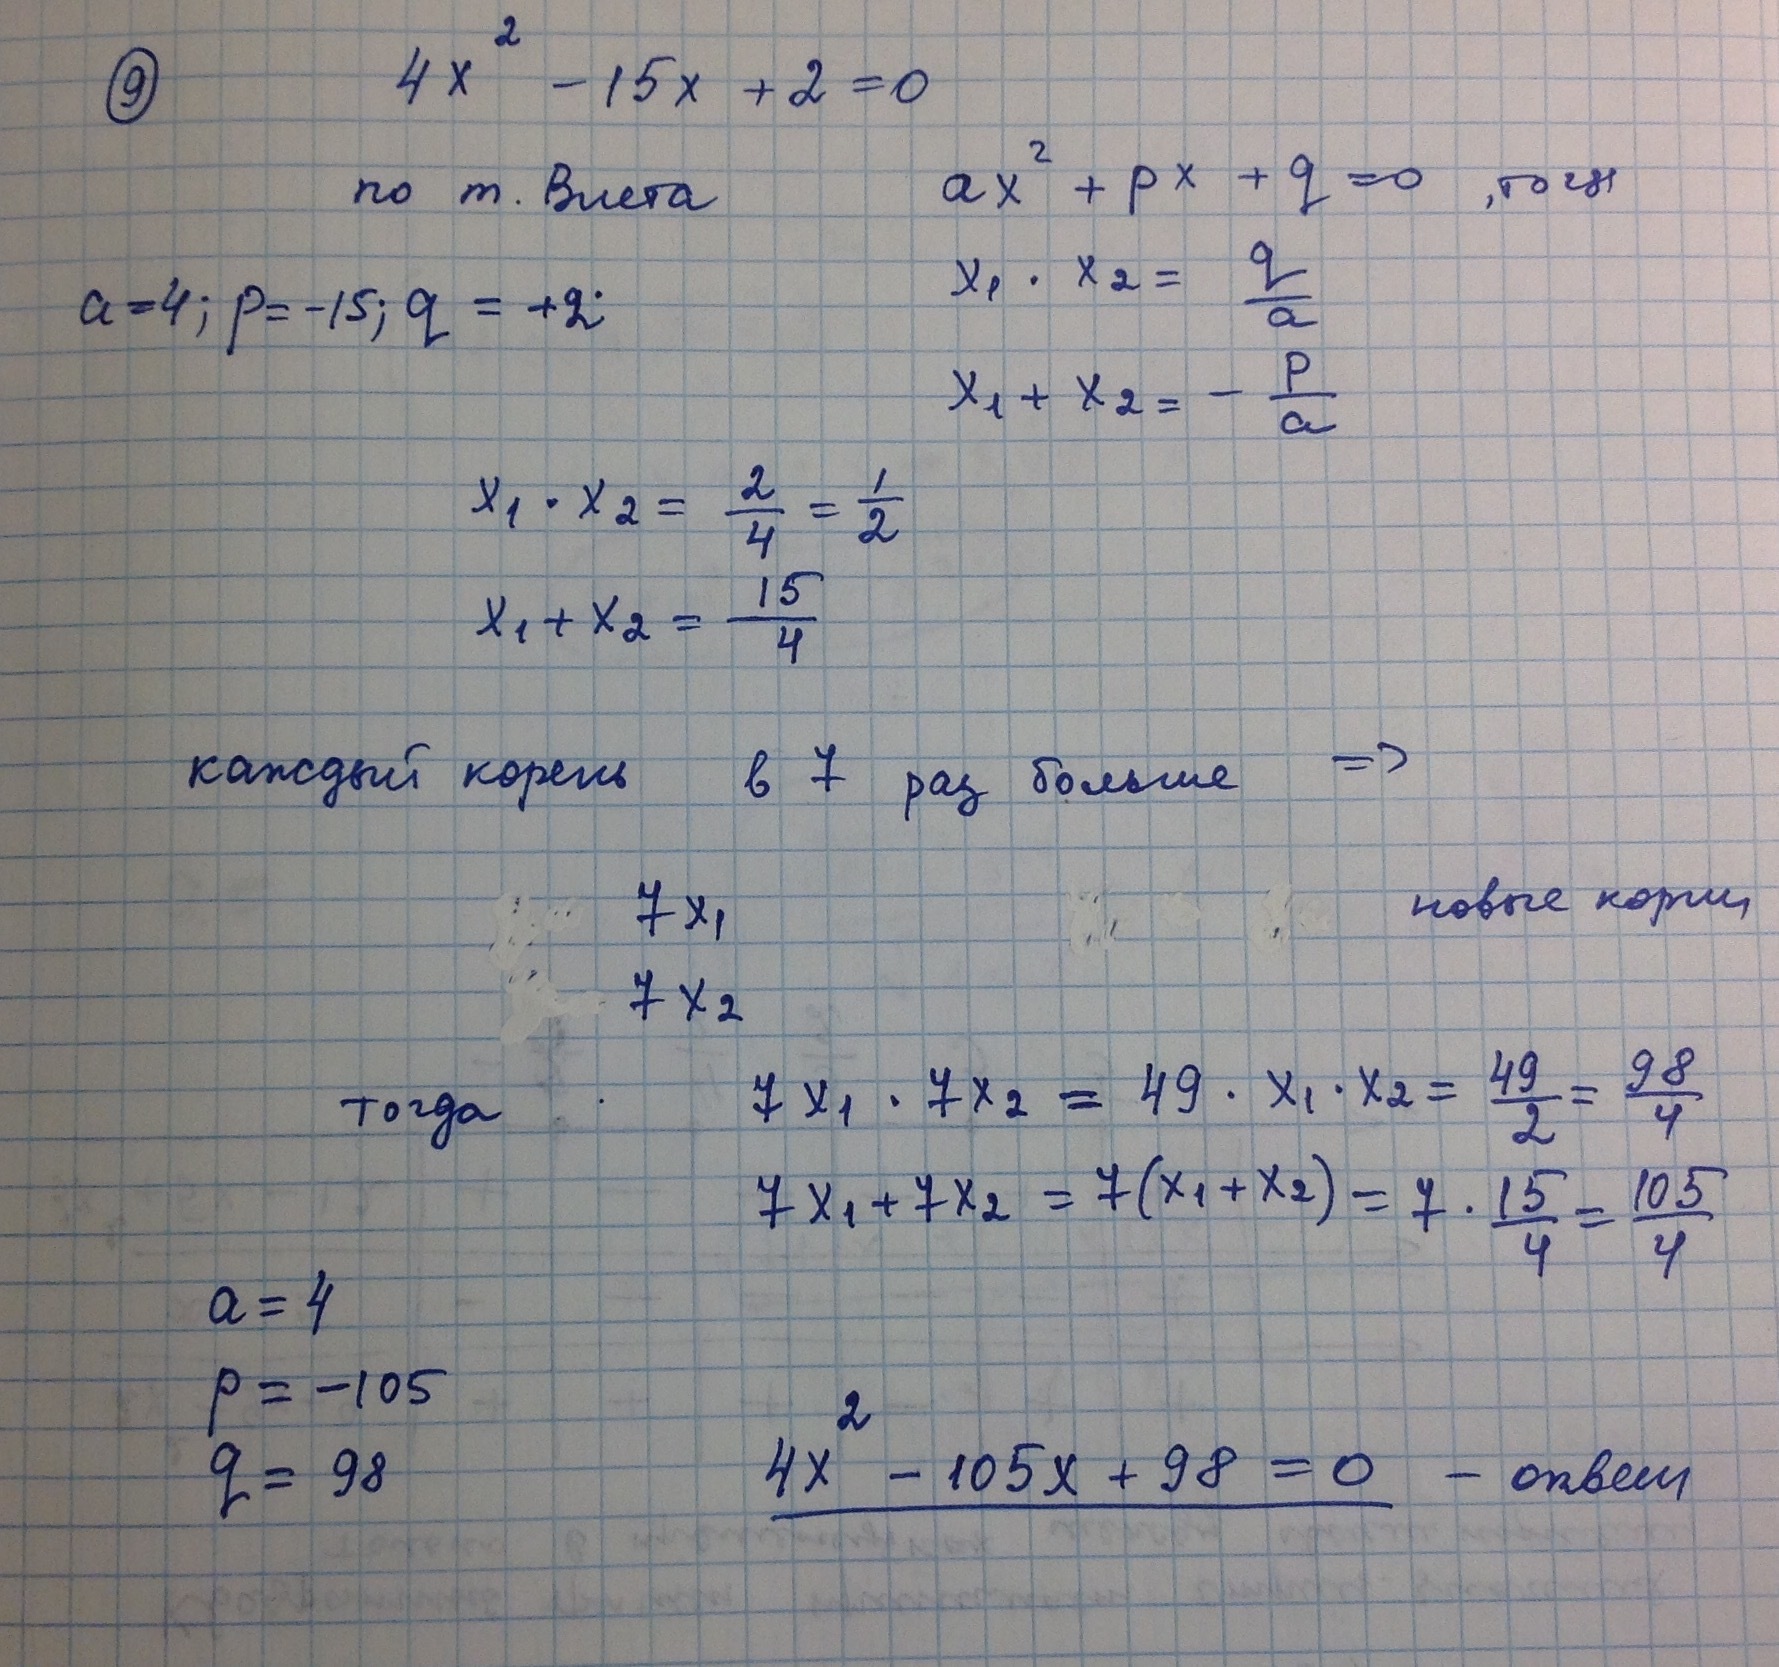 9 4x² - 15x + 2 = 0
по т. Виета ax² + px + q = 0 , тогда
a = 4; p = -15; q = +2;
x₁ · x₂ = q/a
x₁ + x₂ = - p/a
x₁ · x₂ = 2/4 = 1/2
x₁ + x₂ = 15/4
каждый корень в 7 раз больше =>
7x₁ новые корни
7x₂
тогда 7x₁ · 7x₂ = 49 · x₁ · x₂ = 49/2 = 98/4
7x₁ + 7x₂ = 7(x₁ + x₂) = 7 · 15/4 = 105/4
a = 4
p = -105
q = 98
4x² - 105x + 98 = 0 - ответ